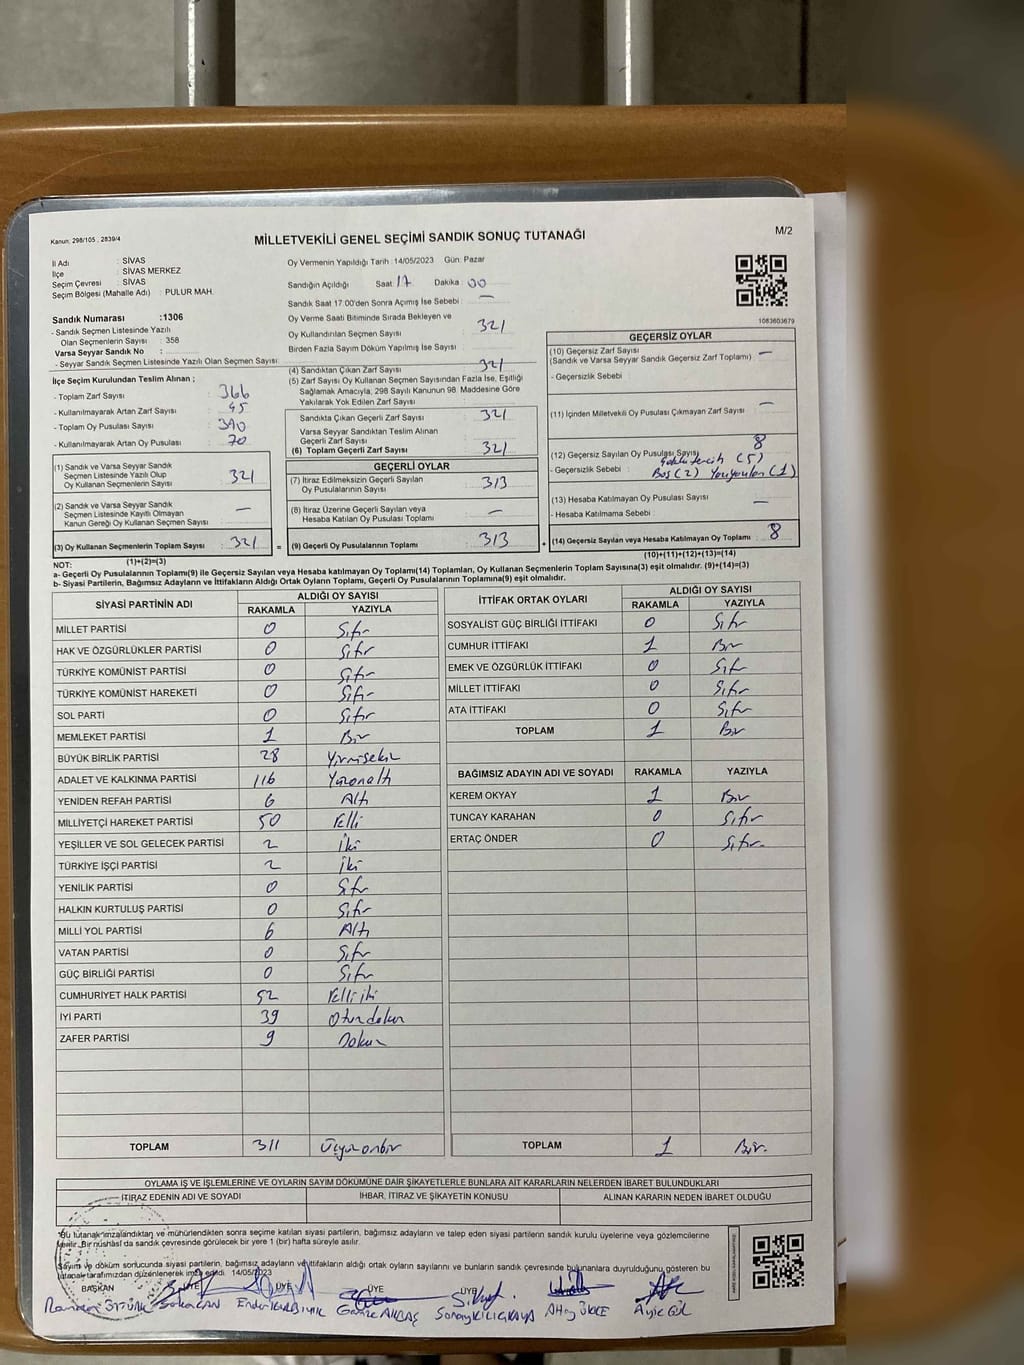 Kanun: 298/105 , 2839/4
MİLLETVEKİLİ GENEL SEÇİMİ SANDIK SONUÇ TUTANAĞI
M/2
İl Adı : SİVAS
İlçe : SİVAS MERKEZ
Seçim Çevresi : SİVAS
Seçim Bölgesi (Mahalle Adı) : PULUR MAH.
Sandık Numarası :1306
- Sandık Seçmen Listesinde Yazılı
Olan Seçmenlerin Sayısı : 358
Varsa Seyyar Sandık No :
- Seyyar Sandık Seçmen Listesinde Yazılı Olan Seçmen Sayısı:
Oy Vermenin Yapıldığı Tarih :14/05/2023 Gün: Pazar
Sandığın Açıldığı Saat: 17 Dakika : 00
Sandık Saat 17:00'den Sonra Açımış İse Sebebi : —
Oy Verme Saati Bitiminde Sırada Bekleyen ve
Oy Kullandırılan Seçmen Sayısı : 321
Birden Fazla Sayım Döküm Yapılmış İse Sayısı :
(4) Sandıktan Çıkan Zarf Sayısı : 321
(5) Zarf Sayısı Oy Kullanan Seçmen Sayısından Fazla İse, Eşitliği
Sağlamak Amacıyla, 298 Sayılı Kanunun 98. Maddesine Göre
Yakılarak Yok Edilen Zarf Sayısı :
1083603679
İlçe Seçim Kurulundan Teslim Alınan ;
- Toplam Zarf Sayısı : 366
- Kullanılmayarak Artan Zarf Sayısı : 45
- Toplam Oy Pusulası Sayısı : 390
- Kullanılmayarak Artan Oy Pusulası : 70
Sandıkta Çıkan Geçerli Zarf Sayısı : 321
Varsa Seyyar Sandıktan Teslim Alınan
Geçerli Zarf Sayısı :
(6) Toplam Geçerli Zarf Sayısı : 321
(1) Sandık ve Varsa Seyyar Sandık
Seçmen Listesinde Yazılı Olup
Oy Kullanan Seçmenlerin Sayısı : 321
(2) Sandık ve Varsa Seyyar Sandık
Seçmen Listesinde Kayıtlı Olmayan
Kanun Gereği Oy Kullanan Seçmen Sayısı : —
(3) Oy Kullanan Seçmenlerin Toplam Sayısı : 321
(1)+(2)=(3)
GEÇERLİ OYLAR
(7) İtiraz Edilmeksizin Geçerli Sayılan
Oy Pusulalarının Sayısı : 313
(8) İtiraz Üzerine Geçerli Sayılan veya
Hesaba Katılan Oy Pusulası Toplamı : —
= (9) Geçerli Oy Pusulalarının Toplamı : 313
GEÇERSİZ OYLAR
(10) Geçersiz Zarf Sayısı : —
(Sandık ve Varsa Seyyar Sandık Geçersiz Zarf Toplamı)
- Geçersizlik Sebebi :
(11) İçinden Milletvekili Oy Pusulası Çıkmayan Zarf Sayısı : —
(12) Geçersiz Sayılan Oy Pusulası Sayısı : 8
- Geçersizlik Sebebi : (5)
Boş (2) (1)
(13) Hesaba Katılmayan Oy Pusulası Sayısı : —
- Hesaba Katılmama Sebebi :
+ (14) Geçersiz Sayılan veya Hesaba Katılmayan Oy Toplamı : 8
(10)+(11)+(12)+(13)=(14)
NOT:
a- Geçerli Oy Pusulalarının Toplamı(9) ile Geçersiz Sayılan veya Hesaba Katılmayan Oy Toplamı(14) Toplamları, Oy Kullanan Seçmenlerin Toplam Sayısına(3) eşit olmalıdır. (9)+(14)=(3)
b- Siyasi Partilerin, Bağımsız Adayların ve İttifakların Aldığı Ortak Oyların Toplamı, Geçerli Oy Pusulalarının Toplamına(9) eşit olmalıdır.
SİYASİ PARTİNİN ADI ALDIĞI OY SAYISI
RAKAMLA YAZIYLA
MİLLET PARTİSİ 0 Sıfır
HAK VE ÖZGÜRLÜKLER PARTİSİ 0 Sıfır
TÜRKİYE KOMÜNİST PARTİSİ 0 Sıfır
TÜRKİYE KOMÜNİST HAREKETİ 0 Sıfır
SOL PARTİ 0 Sıfır
MEMLEKET PARTİSİ 1 Bir
BÜYÜK BİRLİK PARTİSİ 28 Yirmisekiz
ADALET VE KALKINMA PARTİSİ 116 Yüzonaltı
YENİDEN REFAH PARTİSİ 6 Altı
MİLLİYETÇİ HAREKET PARTİSİ 50 Elli
YEŞİLLER VE SOL GELECEK PARTİSİ 2 İki
TÜRKİYE İŞÇİ PARTİSİ 2 İki
YENİLİK PARTİSİ 0 Sıfır
HALKIN KURTULUŞ PARTİSİ 0 Sıfır
MİLLİ YOL PARTİSİ 6 Altı
VATAN PARTİSİ 0 Sıfır
GÜÇ BİRLİĞİ PARTİSİ 0 Sıfır
CUMHURİYET HALK PARTİSİ 52 Elliiki
İYİ PARTİ 39 Otuzdokuz
ZAFER PARTİSİ 9 Dokuz
TOPLAM 311 Üçyüzonbir
İTTİFAK ORTAK OYLARI ALDIĞI OY SAYISI
RAKAMLA YAZIYLA
SOSYALİST GÜÇ BİRLİĞİ İTTİFAKI 0 Sıfır
CUMHUR İTTİFAKI 1 Bir
EMEK VE ÖZGÜRLÜK İTTİFAKI 0 Sıfır
MİLLET İTTİFAKI 0 Sıfır
ATA İTTİFAKI 0 Sıfır
TOPLAM 1 Bir
BAĞIMSIZ ADAYIN ADI VE SOYADI RAKAMLA YAZIYLA
KEREM OKYAY 1 Bir
TUNCAY KARAHAN 0 Sıfır
ERTAÇ ÖNDER 0 Sıfır.
TOPLAM 1 Bir.
OYLAMA İŞ VE İŞLEMLERİNE VE OYLARIN SAYIM DÖKÜMÜNE DAİR ŞİKAYETLERLE BUNLARA AİT KARARLARIN NELERDEN İBARET BULUNDUKLARI
İTİRAZ EDENİN ADI VE SOYADI İHBAR, İTİRAZ VE ŞİKAYETİN KONUSU ALINAN KARARIN NEDEN İBARET OLDUĞU
Bu tutanak imzalandıktan ve mühürlendikten sonra seçime katılan siyasi partilerin, bağımsız adayların ve talep eden siyasi partilerin sandık kurulu üyelerine veya gözlemcilerine
verilir. Bir nüshası da sandık çevresinde görülecek bir yere 1 (bir) hafta süreyle asılır.
Sayım ve döküm sonucunda siyasi partilerin, bağımsız adayların ve ittifakların aldığı ortak oyların sayılarını ve bunların sandık çevresinde bulunanlara duyrulduğunu gösteren bu
tutanak tarafımızdan düzenlenerek imza edildi. 14/05/2023
BAŞKAN ÜYE ÜYE ÜYE ÜYE
ÖZTÜRK CAN Ender Gamze AKBAŞ Sonay KILIÇKAYA Ayşe GÜL